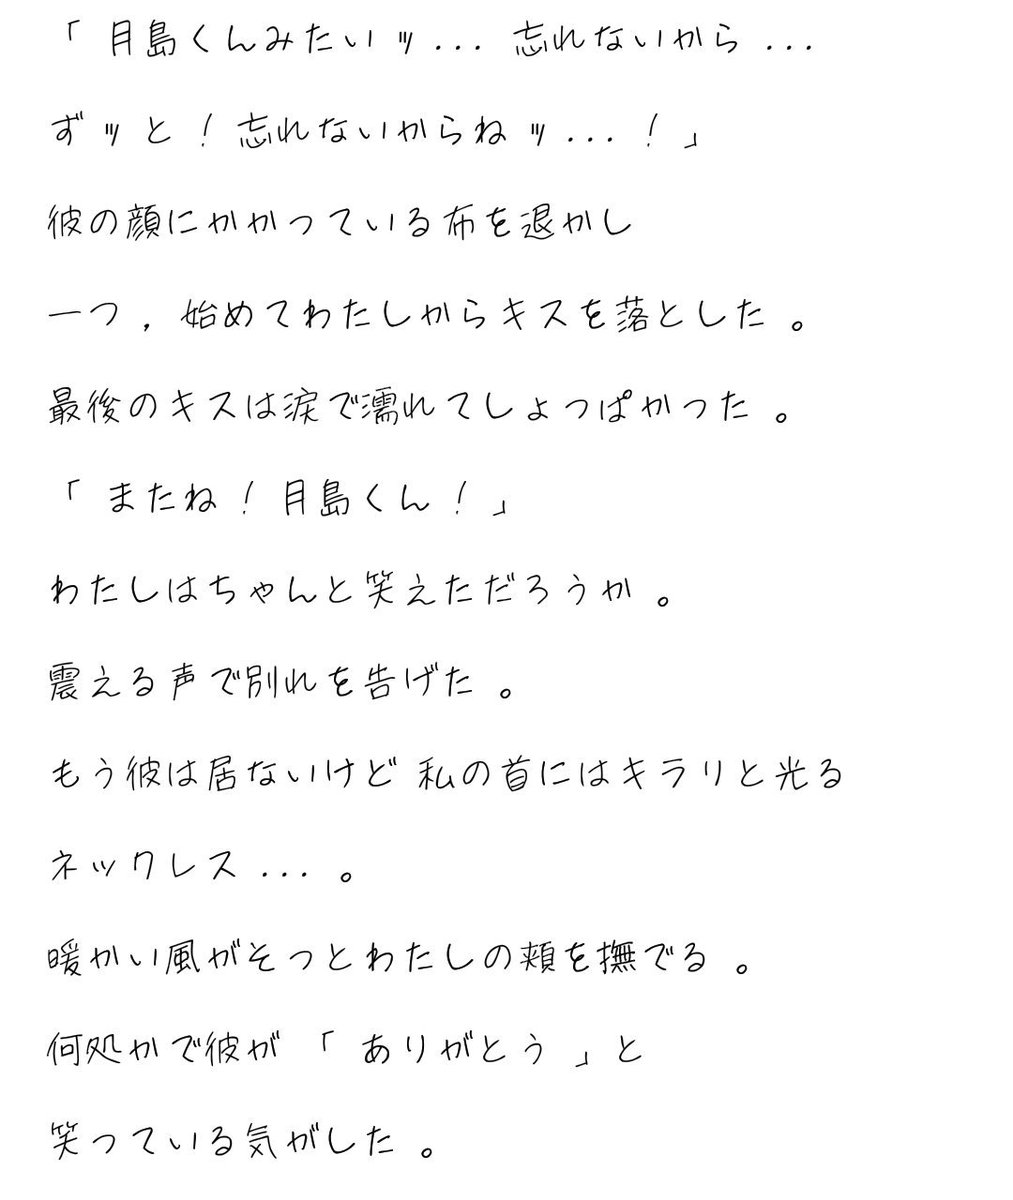 「 月島くんみたいッ... 忘れないから ...
ずッと ! 忘れないからねッ... ! 」
彼の顔にかかっている布を退かし
一つ , 始めてわたしからキスを落とした 。
最後のキスは涙で濡れてしょっぱかった 。
「 またね ! 月島くん ! 」
わたしはちゃんと笑えただろうか 。
震える声で別れを告げた 。
もう彼は居ないけど 私の首にはキラリと光る
ネックレス ... 。
暖かい風がそっとわたしの頬を撫でる 。
何処かで彼が 「 ありがとう 」 と
笑っている気がした 。